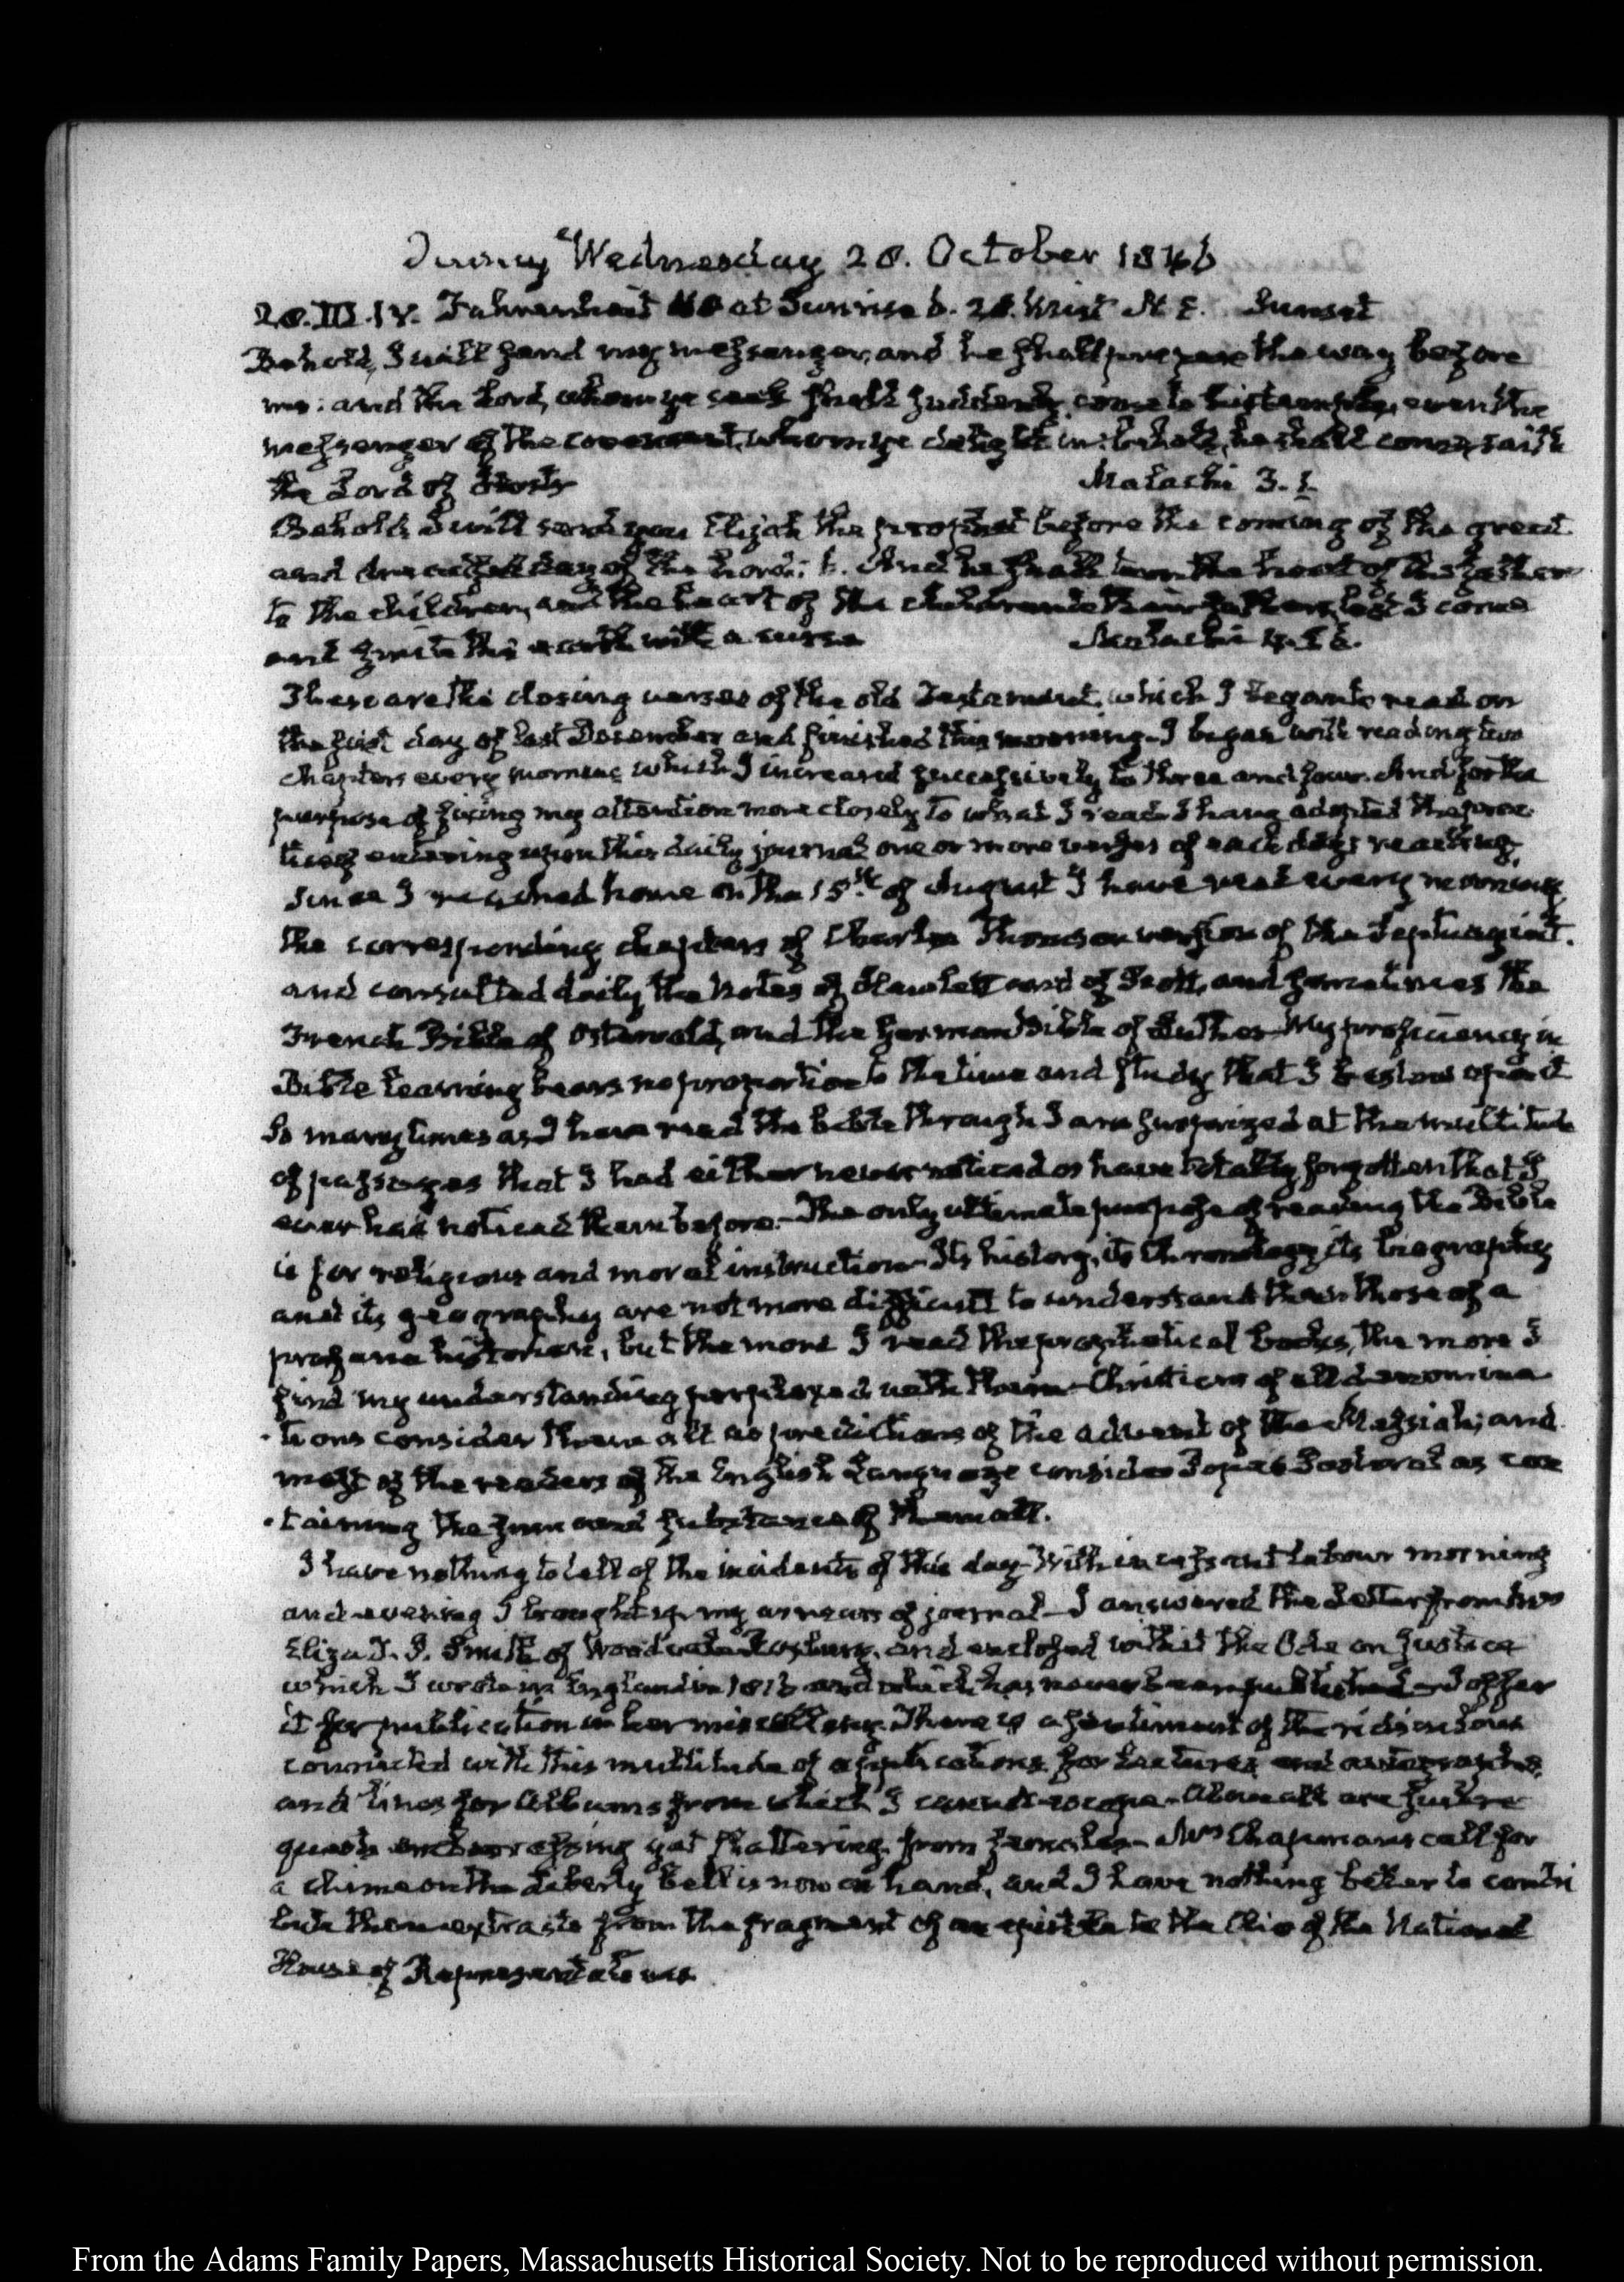 Quincy Wednesday 28. October 1846
28. III. IV. Fahrenheit at Sunrise 6. 28. Wind N E. Sunset
Behold, I will send my messenger, and he shall prepare the way before
me: and the Lord, whom ye seek shall suddenly come to his temple, even the
messenger of the covenant, whom ye delight in: behold, he shall come, saith
the Lord of Hosts Malachi 3. 1.
Behold, I will send you Elijah the prophet before the coming of the great
and dreadful day of the Lord: 6. And he shall turn the heart of the fathers
to the children, and the heart of the children to their fathers, lest I come
and smite the earth with a curse Malachi 4. 5 6.
These are the closing verses of the old Testament, which I began to read on
the first day of last December and finished this morning— I began with reading two
chapters every morning which I increased successively to three and four. And for the
purpose of fixing my attention more closely to what I read I have adopted the prac
tice of entering upon this daily journal one or more verses of each day's reading.
Since I reached home on the 15th of August I have read every morning
the corresponding chapters of Charles Thomson version of the Septuagint.
and consulted daily the Notes of Hewlett and of Scott, and sometimes the
French Bible of Ostervald, and the German Bible of Luther— My proficiency in
Bible learning bears no proportion to the time and study that I bestow upon it
So many times as I have read the bible through I am surprized at the multitude
of passages that I had either never noticed or have totally forgotten that I
ever had noticed them before.— The only ultimate purpose of reading the Bible
is for religious and moral instruction— Its history, its chronology its biography
and its geography are not more difficult to understand than those of a
profane historian, but the more I read the prophetical books, the more I
find my understanding perplexed with them— Christians of all denomina
-tions consider them all as predictions of the advent of the Messiah; and
most of the readers of the English Language consider Pope's Pastoral as con
-taining the sum and substance of them all.
I have nothing to tell of the incidents of this day— With incessant labour morning
and evening I brought up my arrears of journal— I answered the Letter from Mrs
Eliza J. Smith of and enclosed with it the Ode on Justice
which I wrote in England in 1816 and which has never been published— I offer
it for publication in her miscellany. There is a sentiment of the ridiculous
connected with this multitude of applications for lectures and autographs
and lines for Albums from which I cannot escape— Above all are
quests embarrassing yet flattering, from females— Mrs Chapman's call for
a chime on the Liberty Bell is now on hand, and I have nothing better to contri
bute than extracts from the fragment of an epistle to the Clio of the National
House of Representatives
From the Adams Family Papers, Massachusetts Historical Society. Not to be reproduced without permission.